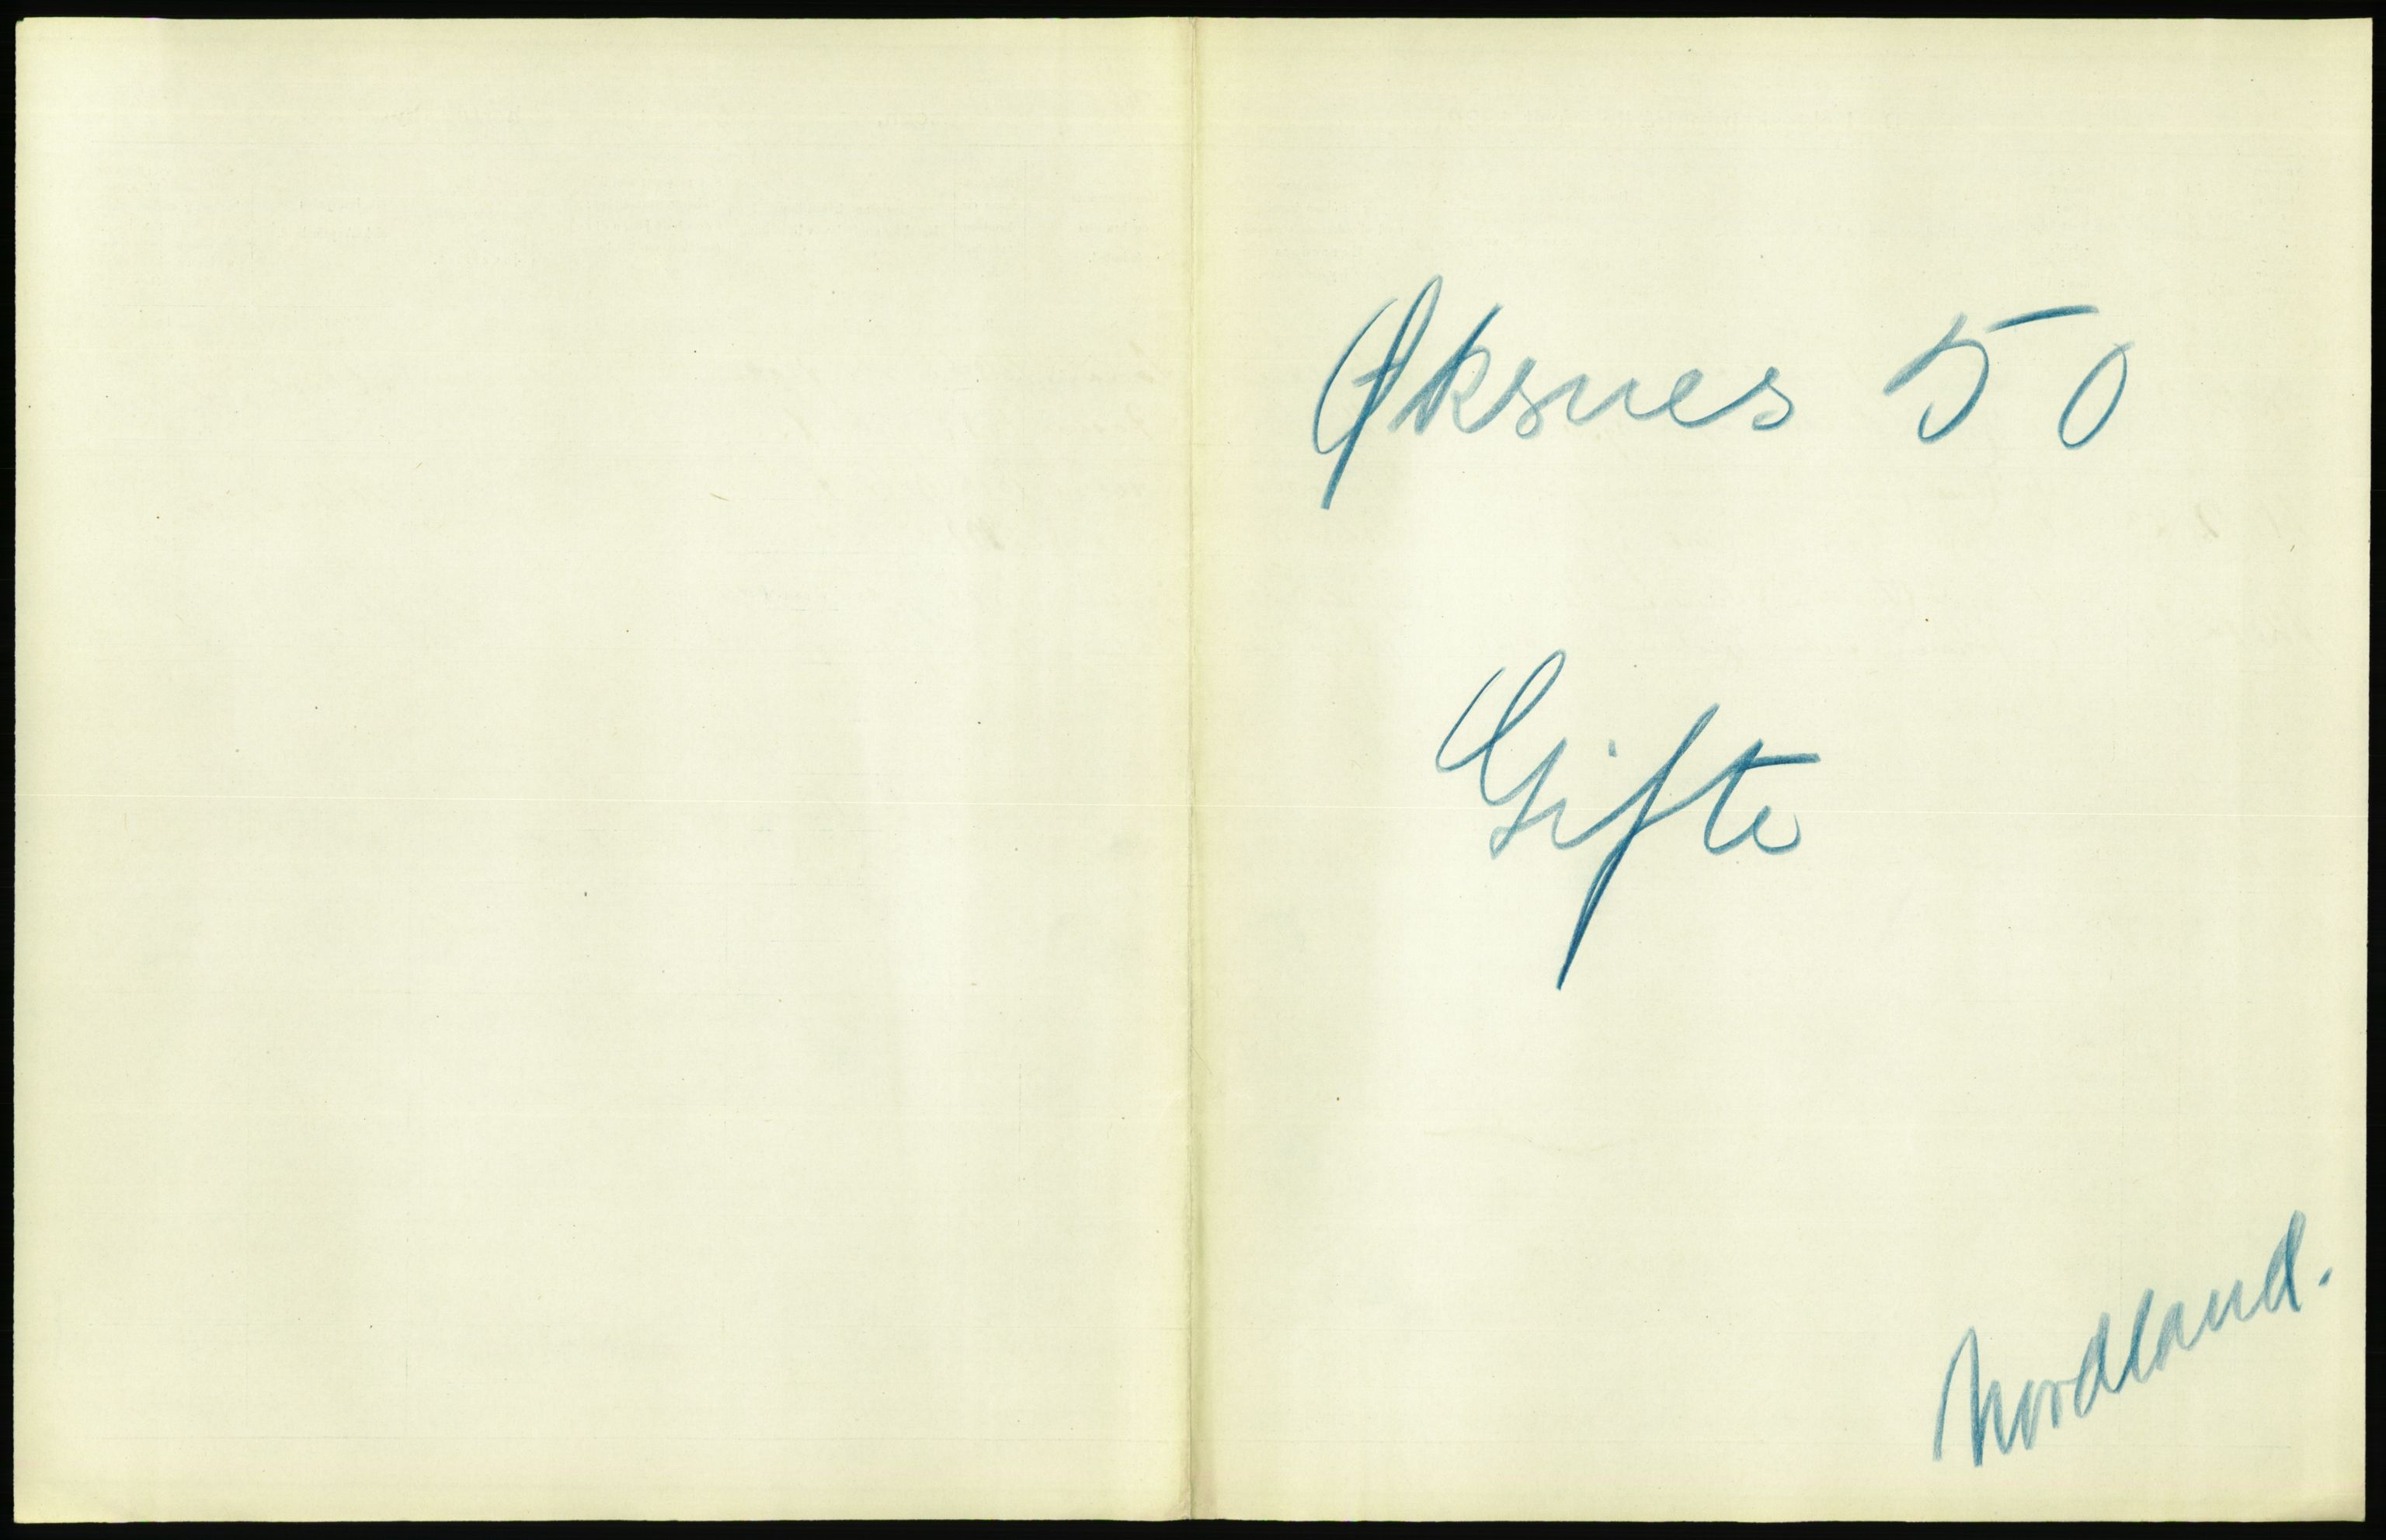 Øksnes 50
Gifte
Nordland.